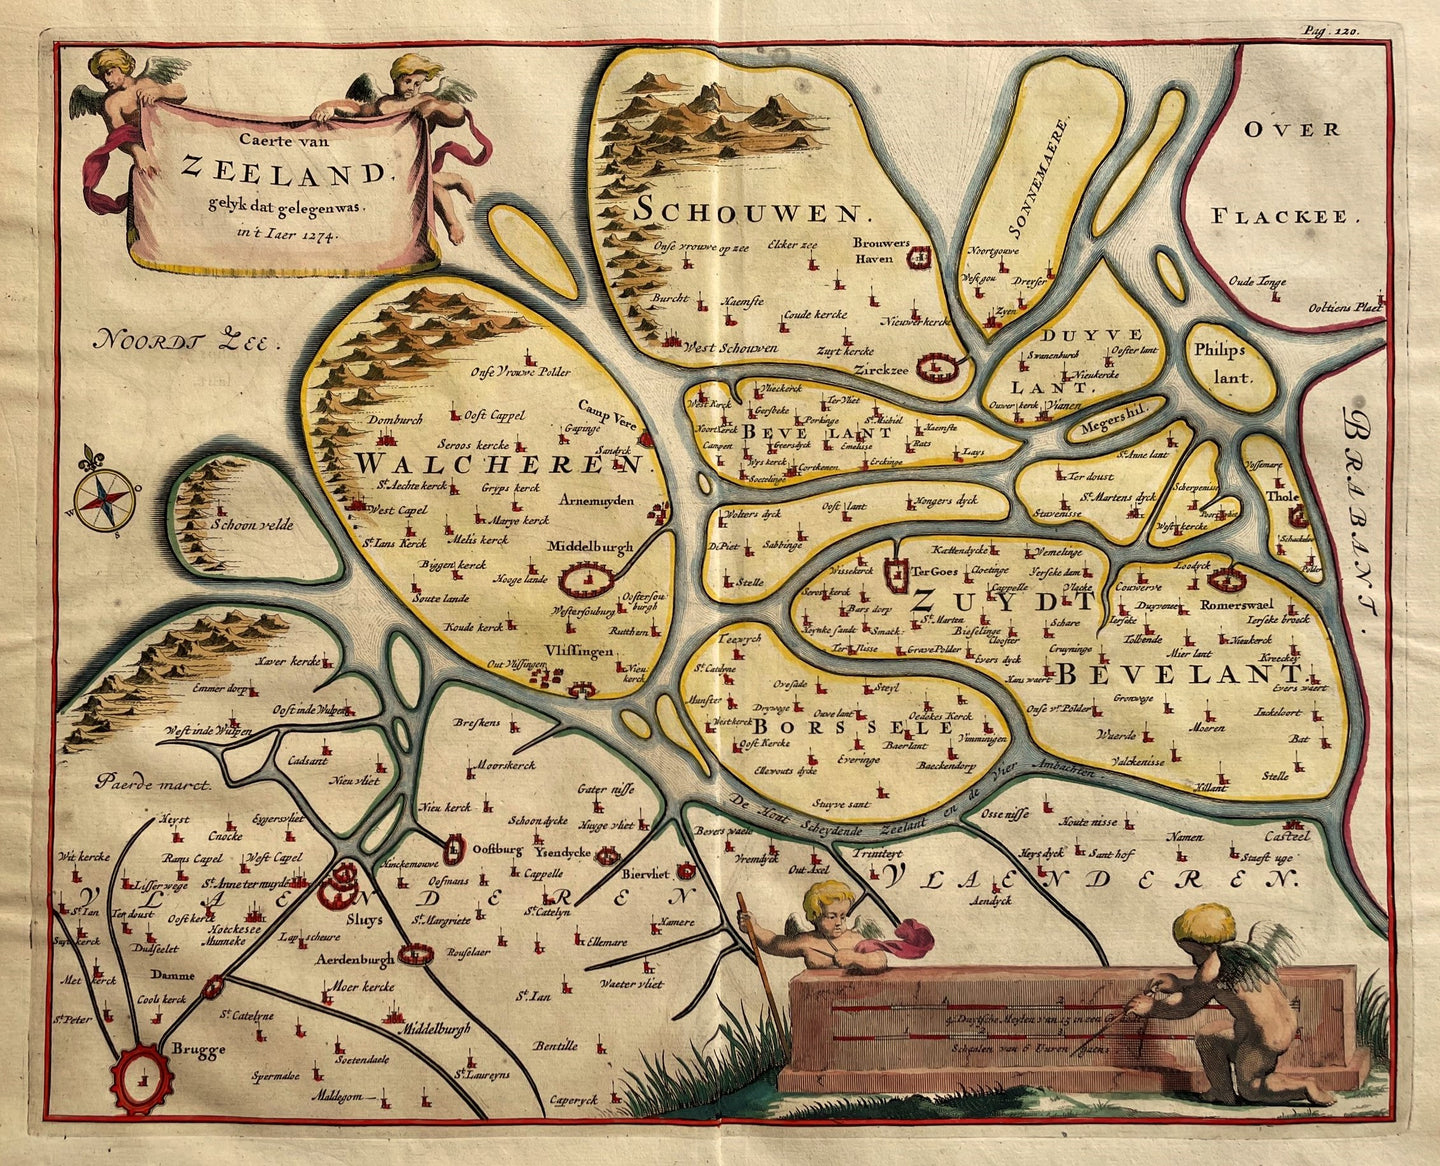 Pag. 120.
Caerte van
ZEELAND.
gelyk dat gelegen was.
in't Iaer 1274.
NOORDT ZEE.
OVER
FLACKEE.
Oude Tonge
Ooltiens Plaet
BRABANT.
SCHOUWEN.
Onse vrouwe op zee
Elcker zee
Brouwers
Haven
Burcht
Haemste
Coude kercke
Nieuwerkercke
West Schouwen
Zuyt kercke
Zirckzee
SONNEMAERE.
Noortgouwe
West gou
Dreyser
Zyen
DUYVE
LANT.
Svanenburch
Ooster lant
Nieukercke
Ouwer kerck
Vianen
Philips
lant.
Megershil.
WALCHEREN.
Onse Vrouwe Polder
Domburch
Oost Cappel
Camp Vere
Gapinge
Seroos kercke
Sandyck
St. Aechte kerck
Gryps kerck
Arnemuyden
West Capel
Marye kerck
St. Ians Kerck
Melis kerck
Middelburgh
Biggen kerck
Hooge lande
Soute lande
Westersouburg
Oostersou
burgh
Koude kerck
Rutthem
Vlissingen
Out Vlissingen
Nieu
kerck
Schoon velde
BEVELANT
West Kerck
Vlieckerck
Gersbeke
Ter Vliet
Noortkerck
Porkinge
St. Michiel
Haemste
Campen
Geersdyck
Emelisse
Rats
Wys kerck
Cortkenen
Erckinge
Lays
Soetelinge
Wolters dyck
Oost lant
Hongers dyck
De Piet
Sabbinge
Stelle
St. Anne lant
Ter doust
St. Martens dyck
Stavenisse
Scherpenisse
West kercke
Vossemare
Thole
Schackelo
Polder
ZUYDT
BEVELANT.
Wissekerck
Ter Goes
Kattendycke
Vemelinge
Cloetinge
Yerseke dam
Cappelle
Vlacke
Couwerve
Loodyck
Romerswael
Bars dorp
St. Marten
Duyvenee
Ierseke broeck
Heynke sande
Smack
Bieselinge
Clooster
Schare
Ierseke
Tolbende
Nieukerck
Ter Nisse
Grave Polder
Evers dyck
Cruyninge
Mier lant
Kreeckey
Hans waert
Evers waert
Onse vr. Polder
Gronwege
Inckeloort
Waerde
Moeren
Bat
Valckenisse
Stelle
Hillant
BORSSELE
Teewych
St. Catelyne
Munster
Ovesade
Steyl
Drywege
Ouwe lant
Oedekes Kerck
Westkerck
Oost Kercke
Baerlant
Vimmingen
Everinge
Baeckendorp
Ellewouts dycke
Stuyve sant
De Hont Scheydende Zeelant en de Vier Ambachten.
VLAENDEREN
VLAENDEREN.
Xaver kercke
Emmer dorp
Oost inde Wulpen
West inde Wulpen
Cadsant
Nieu vliet
Paerde marct.
Breskens
Moorskerck
Gater nisse
Nieu kerck
Schoon dycke
Huyge vliet
Oostburg
Ysendycke
Hinckemouwe
Oofmans
Cappelle
Biervliet
St. Margriete
St. Catelyn
Hamere
Rouselaer
Ellemare
Waeter vliet
St. Ian
Bentille
Caperyck
Heyst
Eygersvliet
Cnocke
Wit kercke
Rams Capel
West Capel
Lisser wege
St. Anne ter muyde
St. Ian
Ter doust
Oost kerck
Hotckesee
Munneke
Sluys
Dudseelet
Lapscheure
Aerdenburgh
Met kerck
Damme
Cools kerck
Moer kercke
St. Peter
St. Catelyne
Middelburgh
Brugge
Soetendaele
Spermaloe
St. Laureyns
Maldegom
Bevers waele
Vremdyck
Out Axel
Triniteyt
Osse nisse
Houte nisse
Heys dyck
Sant hof
Namen
Casteel
Staest uge
Aendyck
4 Duytsche Meylen van 15 in een Gr
Schaelen van 6 Vuren gaens